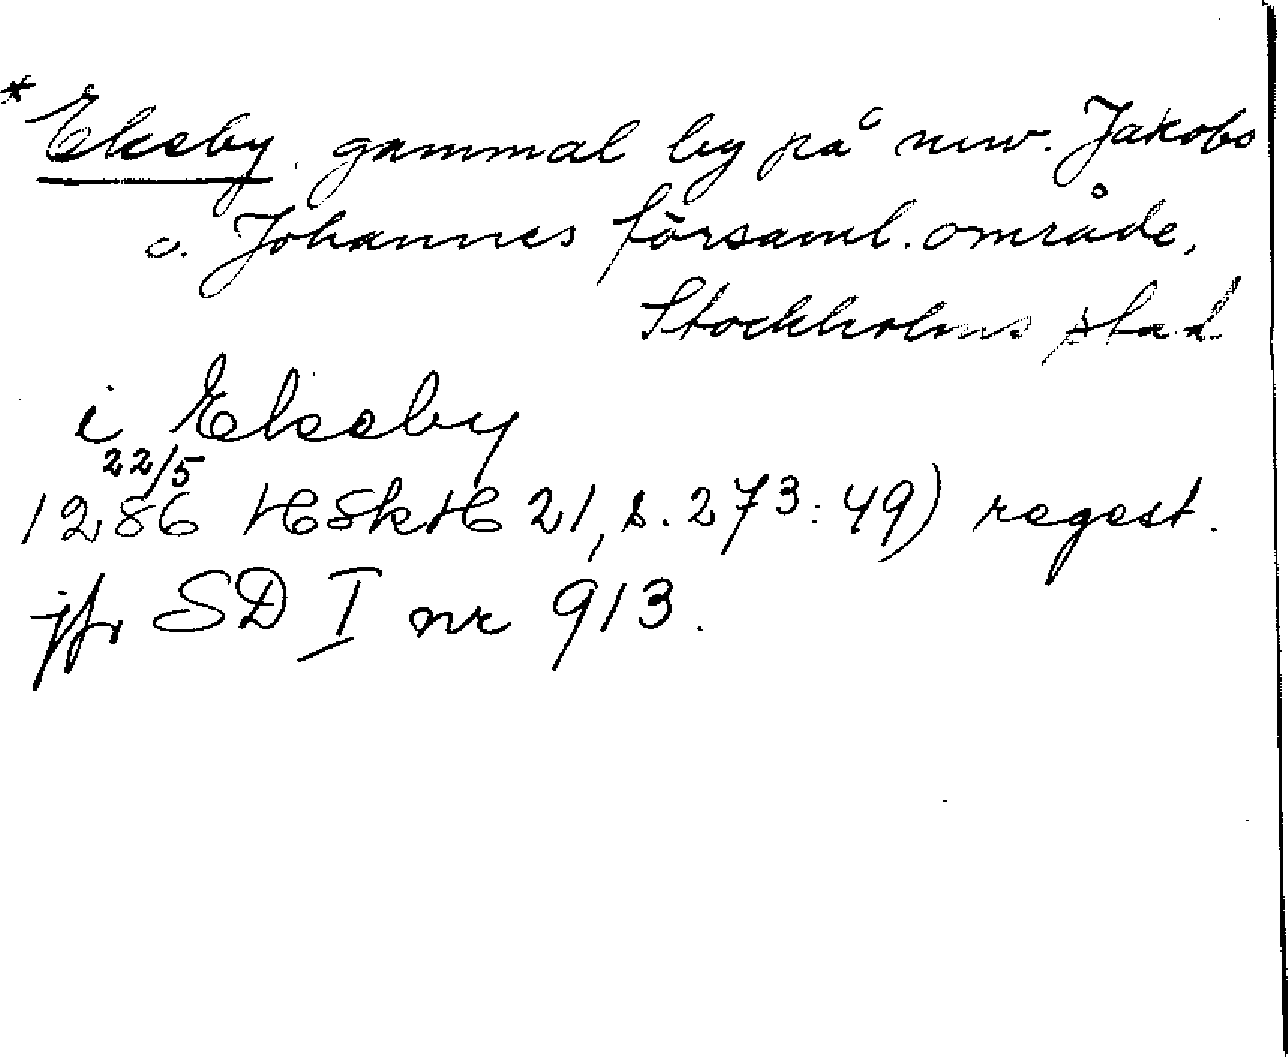 * Ekeby. gammal by på nuv. Jakobs
o. Johannes församl. område,
Stockholms stad
i Ekeby
22/5
1286 HSkH 21, s. 273: 49) regest.
jfr SD I nr 913.